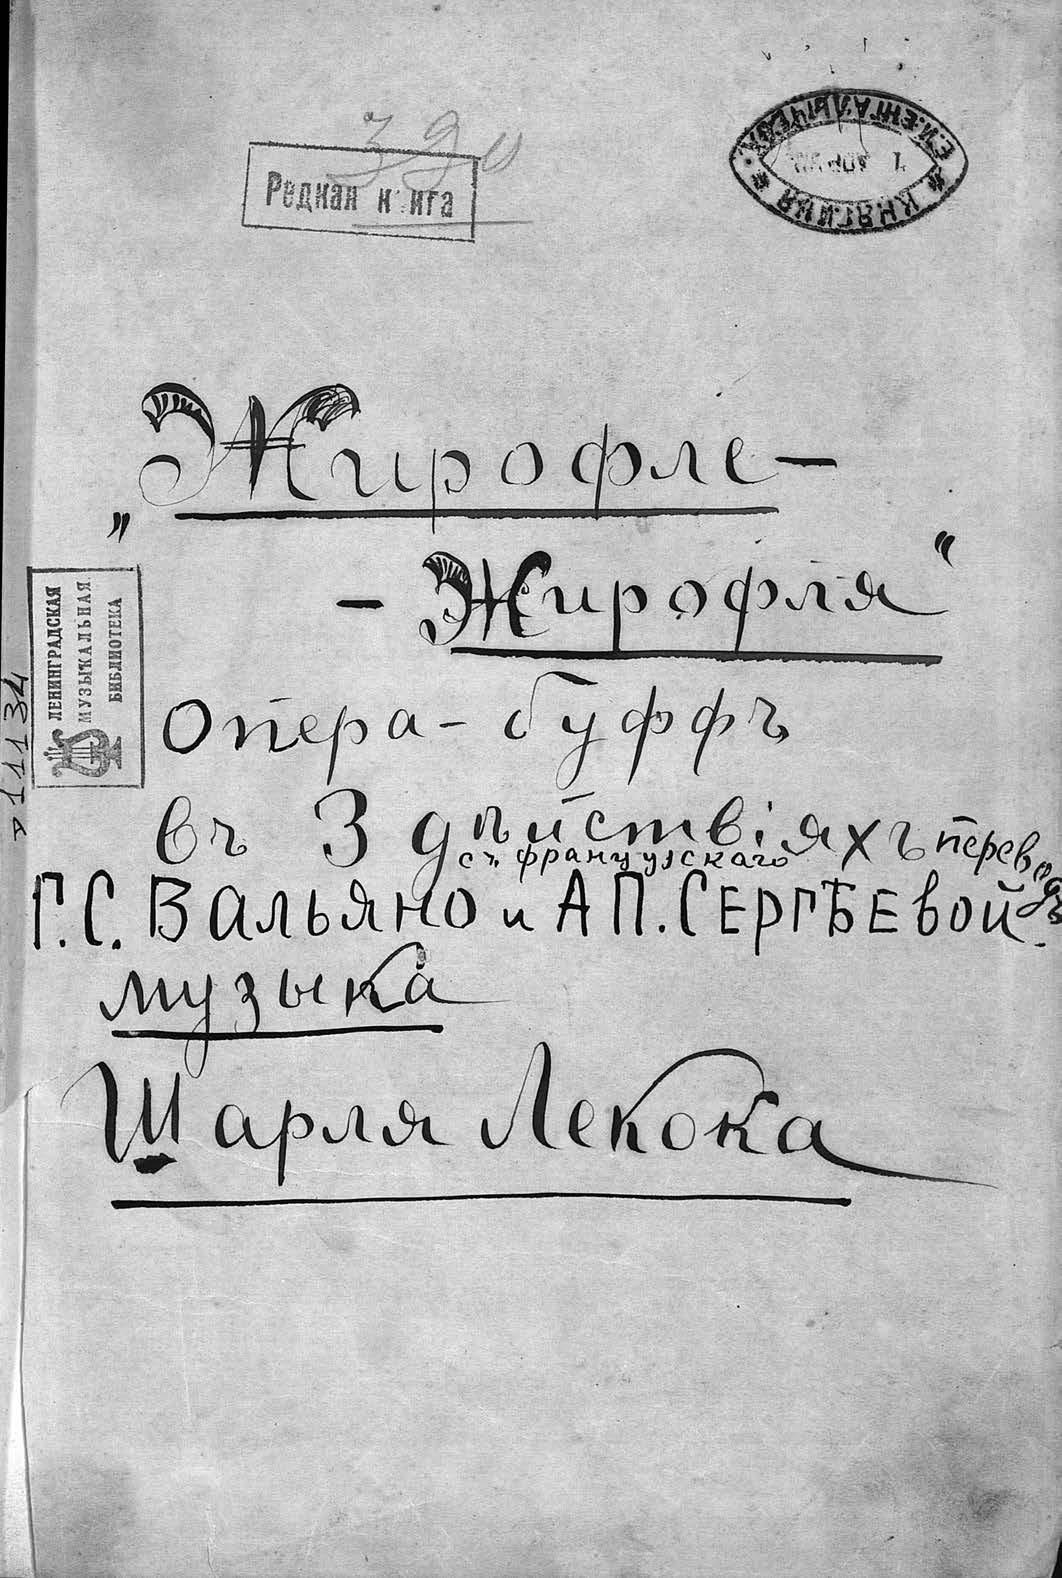 390
Редкая книга
* КНЯГИНЯ * Е.И. ЕНГАЛЫЧЕВА.
„Жирофле-
-Жирофля“
ЛЕНИНГРАДСКАЯ
МУЗЫКАЛЬНАЯ
БИБЛИОТЕКА
11134
опера-буффъ
въ 3 дѣйствіяхъ переводъ
съ французскаго
Г.С. Вальяно и А.П. Сергѣевой.
музыка
Шарля Лекока